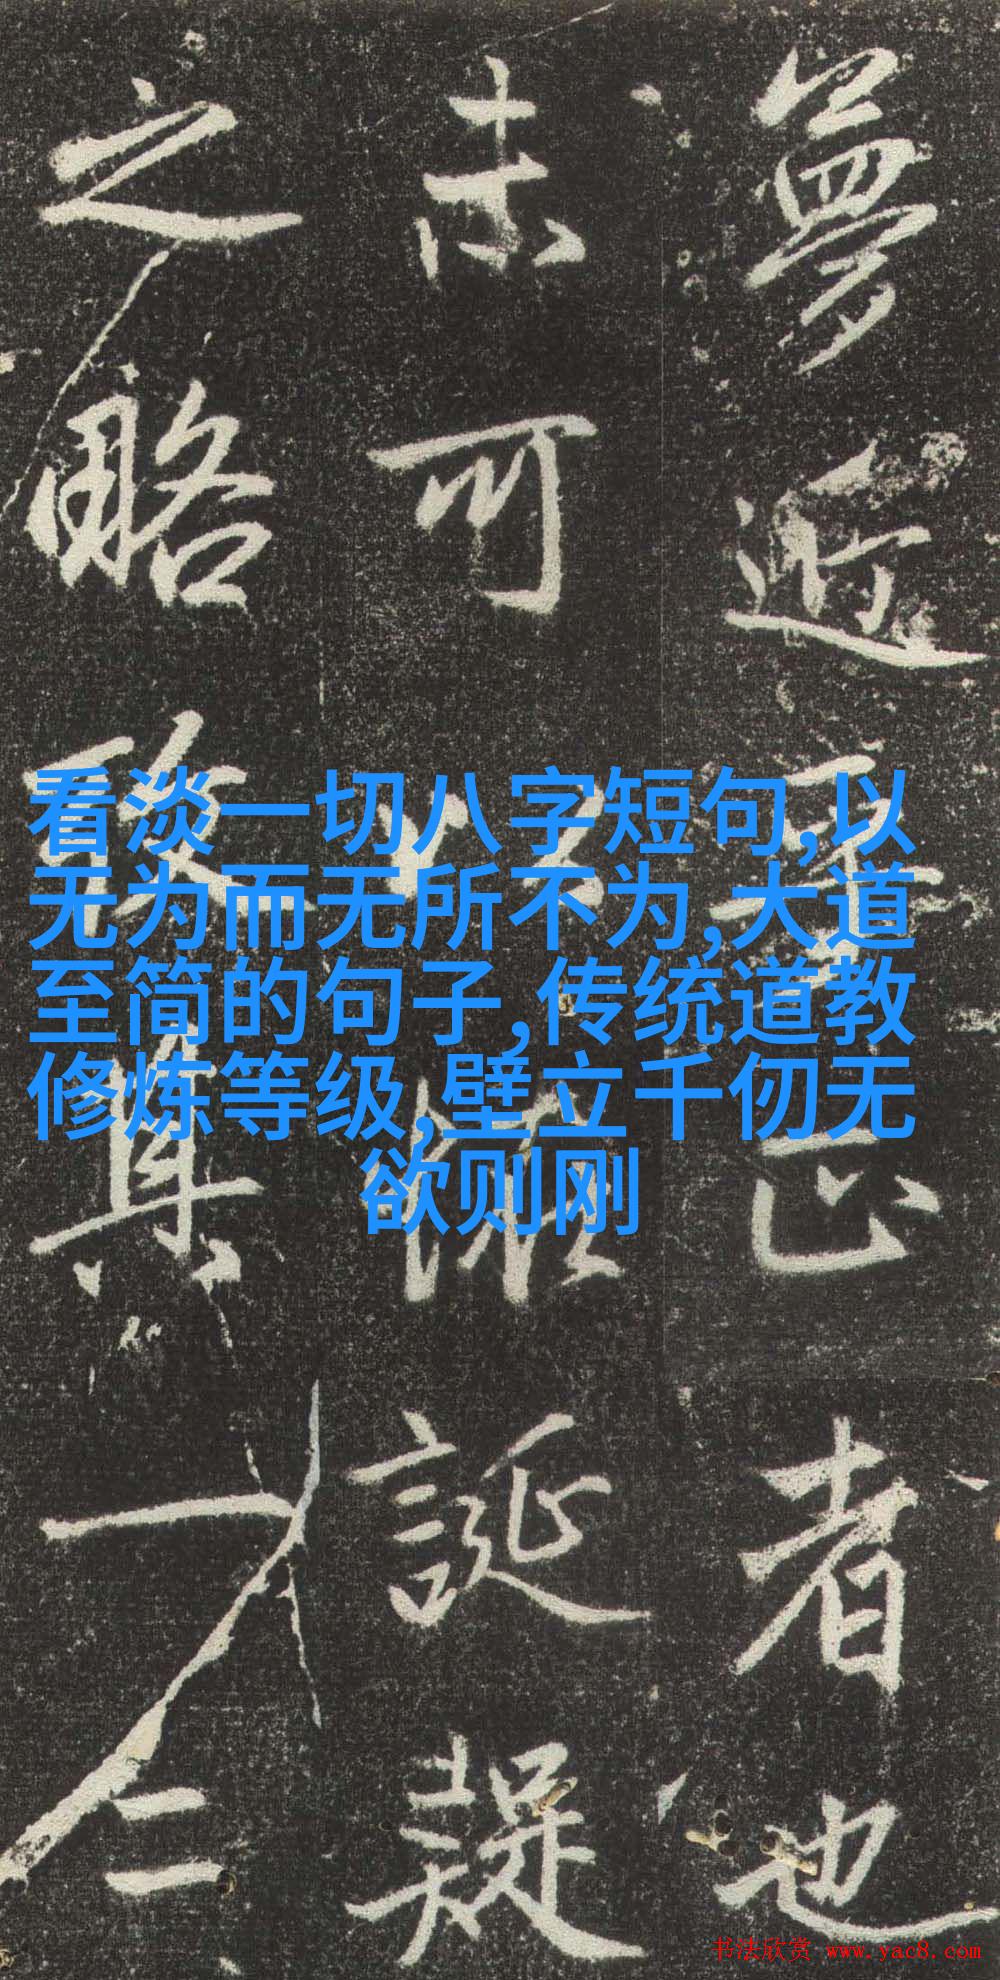 看淡一切八字短句,以
无为而无所不为,大道
至简的句子,传统道教
修炼等级,壁立千仞无
欲则刚
夢近乎正者也
可以誕疑
之略其一二
书法欣赏 www.yac8.com